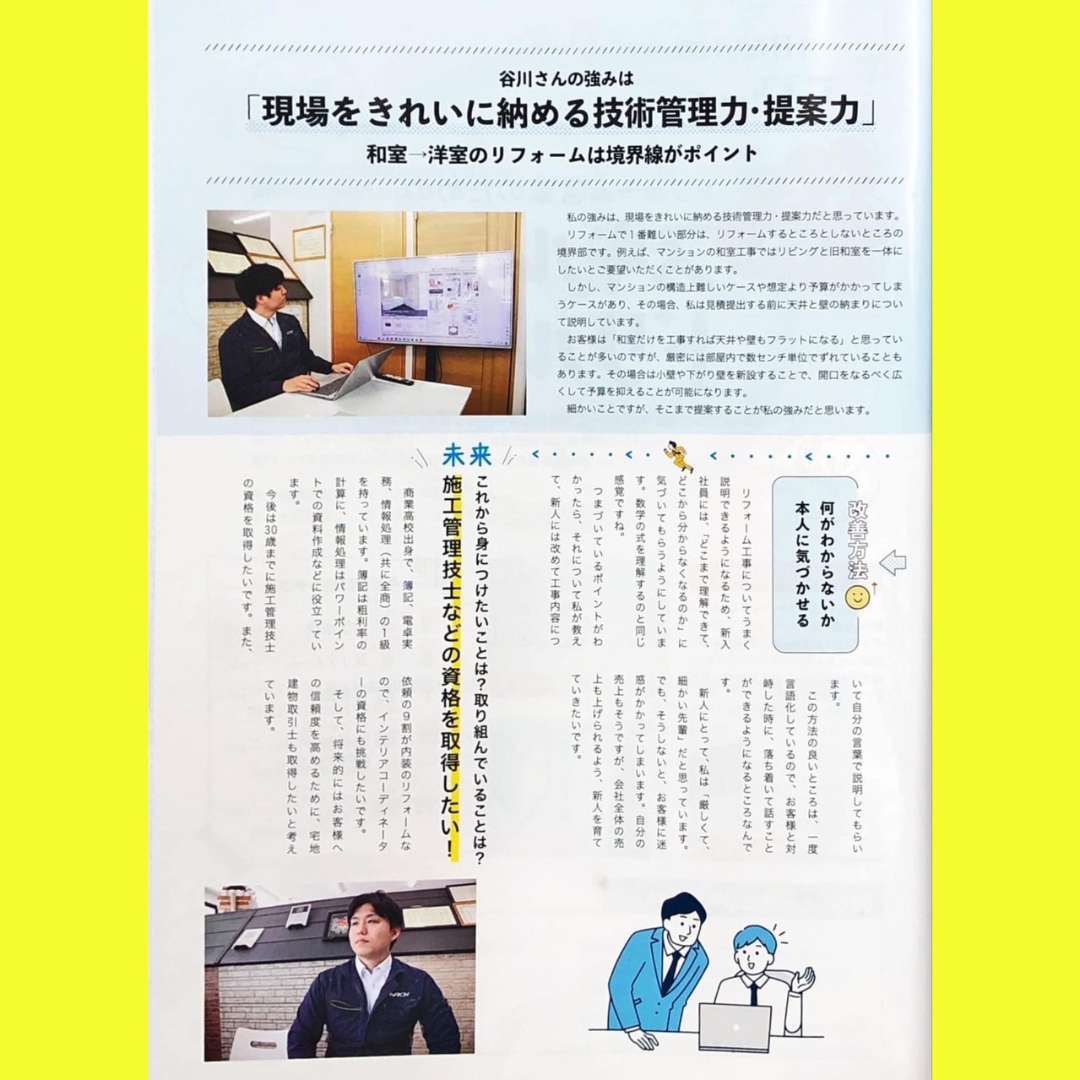 谷川さんの強みは
「現場をきれいに納める技術管理力・提案力」
和室→洋室のリフォームは境界線がポイント
私の強みは、現場をきれいに納める技術管理力・提案力だと思っています。
リフォームで1番難しい部分は、リフォームするところとしないところの
境界部です。例えば、マンションの和室工事ではリビングと旧和室を一体に
したいとご要望いただくことがあります。
しかし、マンションの構造上難しいケースや想定より予算がかかってしま
うケースがあり、その場合、私は見積提出する前に天井と壁の納まりについ
て説明しています。
お客様は「和室だけを工事すれば天井や壁もフラットになる」と思ってい
ることが多いのですが、厳密には部屋内で数センチ単位でずれていることも
あります。その場合は小壁や下がり壁を新設することで、開口をなるべく広
くして予算を抑えることが可能になります。
細かいことですが、そこまで提案することが私の強みだと思います。
改善方法
何がわからないか
本人に気づかせる
リフォーム工事についてうまく
説明できるようになるため、新入
社員には、「どこまで理解できて、
どこから分からなくなるのか」に
気づいてもらうようにしていま
す。数学の式を理解するのと同じ
感覚ですね。
つまづいているポイントがわ
かったら、それについて私が教え
て、新人には改めて工事内容につ
いて自分の言葉で説明してもらい
ます。
この方法の良いところは、一度
言語化しているので、お客様と対
峙した時に、落ち着いて話すこと
ができるようになるところなんで
す。
新人にとって、私は「厳しくて、
細かい先輩」だと思っています。
でも、そうしないと、お客様に迷
惑がかかってしまいます。自分の
売上もそうですが、会社全体の売
上も上げられるよう、新人を育て
ていきたいです。
未来
これから身につけたいことは?取り組んでいることは?
施工管理技士などの資格を取得したい!
商業高校出身で、簿記、電卓実
務、情報処理(共に全商)の1級
を持っています。簿記は粗利率の
計算に、情報処理はパワーポイン
トでの資料作成などに役立ってい
ます。
今後は30歳までに施工管理技士
の資格を取得したいです。また、
依頼の9割が内装のリフォームな
ので、インテリアコーディネータ
ーの資格にも挑戦したいです。
そして、将来的にはお客様へ
の信頼度を高めるために、宅地
建物取引士も取得したいと考え
ています。